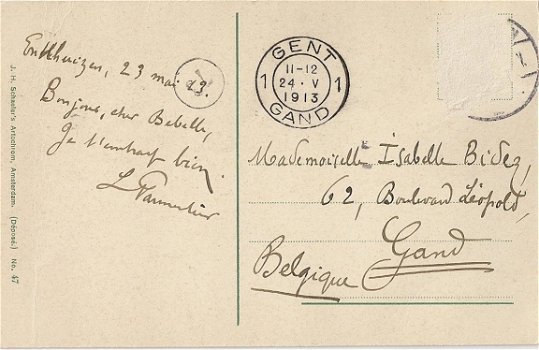 Enkhuizen, 23 mai 13.
Bonjour, cher Bebelle,
Je t'embrasse bien
L
GENT
11-12
1 24 · V 1
1913
GAND
Mademoiselle Isabelle Bidez,
62, Boulevard Léopold,
Gand
Belgique
J. H. Schaefer's Artochrom, Amsterdam. (Déposé.) No. 47